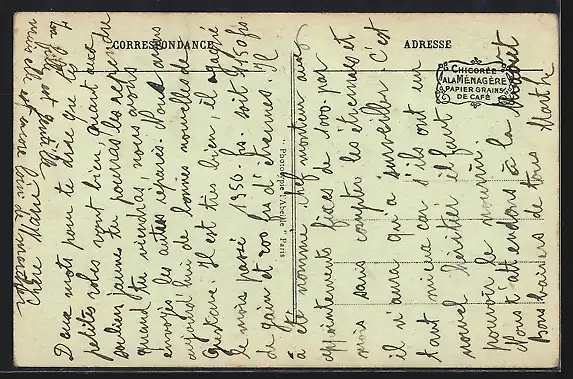 CORRESPONDANCE
ADRESSE
CHICORÉE
A LA MÉNAGÈRE
PAPIER GRAINS
DE CAFÉ
"Phototypie "Abeille" Paris
Deux mots pour te dire que les
petites robes vont bien, quant aux
souliers jaunes tu pourras les reprendre
quand tu viendras, nous avons
envoyé les autres réparés. Nous avons
aujourd'hui de bonnes nouvelles de
Gustave. Il est très bien, il a gagné
le mois passé 1950 frs. soit 1750 frs
de gain et 200 frs d'étrennes. Il
a été nommé chef monteur aux
appointements fixes de 1000 par
mois sans compter les étrennes et
il n'aura qu'à surveiller. C'est
tant mieux car s'ils ont un
nouvel héritier il faut
pouvoir le nourrir.
Nous t'attendons à la
bons baisers de tous Marthe
Ta fille est gentille
mais elle